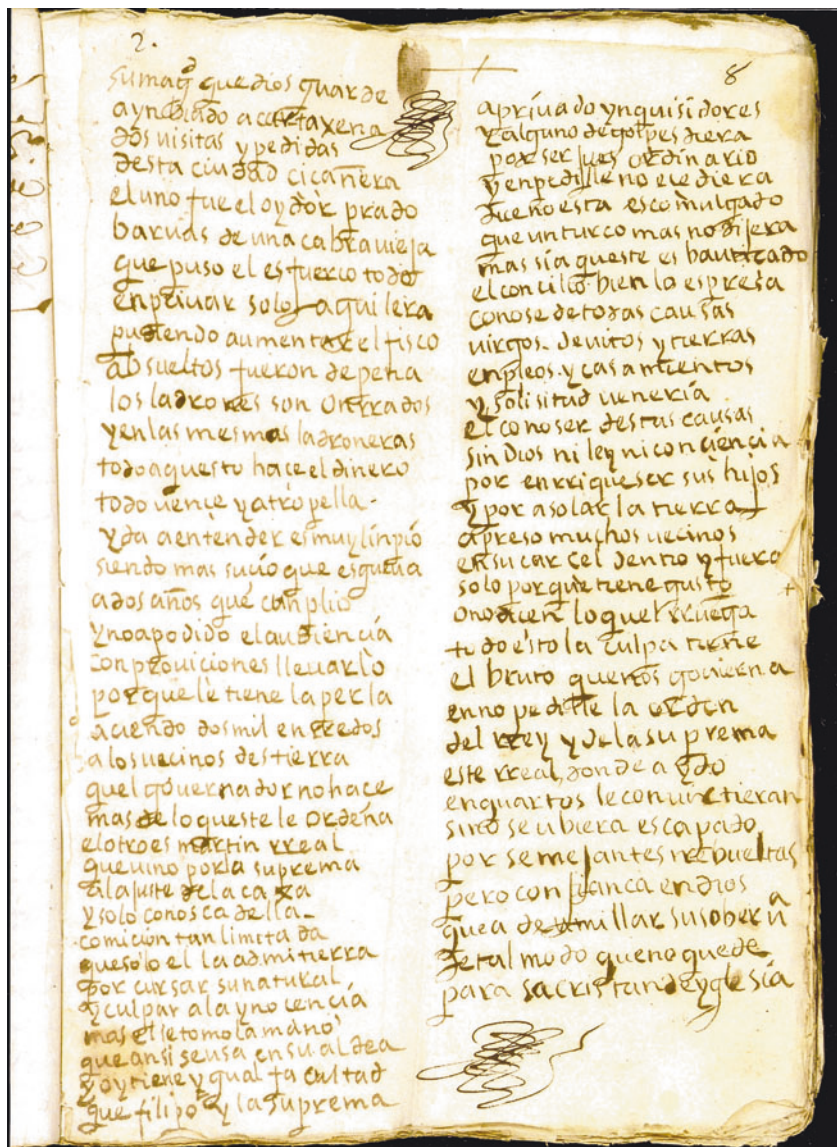 2.
8
su magd que dios guarde
a ynbiado a cartaxena
dos visitas y pedidas
desta ciudad cicañera
el uno fue el oydor prado
barvas de una cabra vieja
que puso el esfuerco todo
en privar solo aguilera
pudiendo aumentar el fisco
absueltos fueron de pena
los ladrones son onrrados
y en las mesmas ladroneras
todo aquesto hace el dinero
todo vence y atropella
y da a entender es muy linpio
siendo mas sucio que esgueva
a dos años que cunplio
y no a podido el audiencia
con proviciones llevarlo
porque le tiene la perla
aciendo dos mil enrredos
a los vecinos destierra
quel governador no hace
mas de lo queste le ordena
el otro es martin rreal
que vino por la suprema
al ajuste de la caxa
y solo conosca della
comicion tan limitada
que solo el la admitierra
por cursar su natural
y culpar a la ynocencia
mas el se tomo la mano
que ansi se usa en su aldea
y oy tiene ygual facultad
que filipo 4º y la suprema
a privado ynquisidores
y alguno de golpes diera
por ser jues ordinario
y en pedille no ele diera
dueno esta escomulgado
que un turco mas no dijera
mas si a queste es bauticado
el concilio bien lo espresa
conose de todas causas
virgos devitos y tierras
enpleos y casamientos
y solisitud veneria
el conoser destas causas
sin Dios ni ley ni conciencia
por enrriqueser sus hijos
y por asolar la tierra
a preso muchos vecinos
en su carcel dentro y fuera
solo porque tiene gusto
o no dicen lo quel rruega
todo esto la culpa tiene
el bruto que nos govierna
en no pedille la orden
del rrey y de la suprema
este rreal donde a ydo
en quartos le convirtieran
sino se ubiera escapado
por semejantes rrebueltas
pero confianca en dios
que a de umillar su soberva
de tal modo que no quede
para sacristan de yglesia